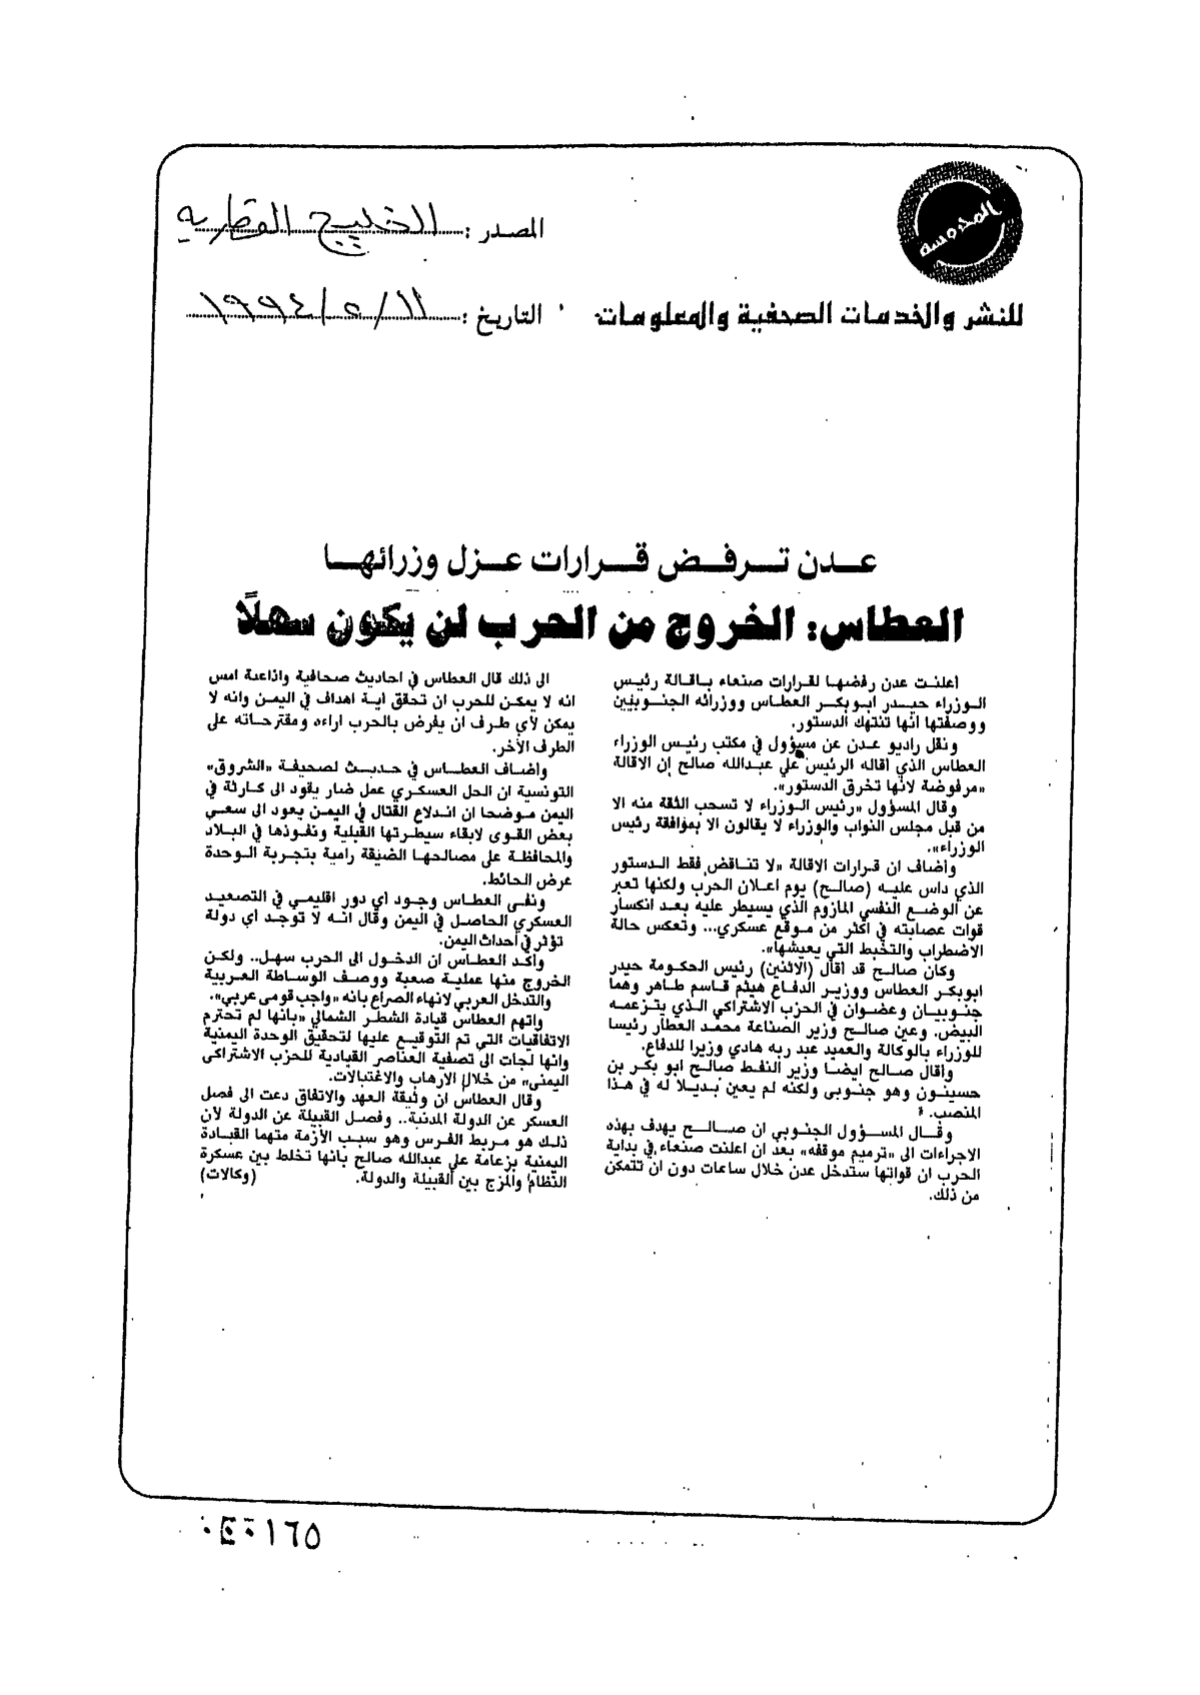 المحروسة
المصدر : الخليج القطريه
للنشر والخدمات الصحفية والمعلومات
التاريخ : ١١ / ٥ / ١٩٩٤
عدن ترفض قرارات عزل وزرائها
العطاس: الخروج من الحرب لن يكون سهلاً
أعلنت عدن رفضها لقرارات صنعاء باقالة رئيس
الوزراء حيدر ابوبكر العطاس ووزرائه الجنوبيين
ووصفتها انها تنتهك الدستور.
ونقل راديو عدن عن مسؤول في مكتب رئيس الوزراء
العطاس الذي أقاله الرئيس علي عبدالله صالح إن الاقالة
«مرفوضة لانها تخرق الدستور».
وقال المسؤول «رئيس الوزراء لا تسحب الثقة منه الا
من قبل مجلس النواب والوزراء لا يقالون الا بموافقة رئيس
الوزراء».
وأضاف ان قرارات الاقالة «لا تناقض فقط الدستور
الذي داس عليه (صالح) يوم اعلان الحرب ولكنها تعبر
عن الوضع النفسي المازوم الذي يسيطر عليه بعد انكسار
قوات عصابته في أكثر من موقع عسكري... وتعكس حالة
الاضطراب والتخبط التي يعيشها».
وكان صالح قد أقال (الاثنين) رئيس الحكومة حيدر
ابوبكر العطاس ووزير الدفاع هيثم قاسم طاهر وهما
جنوبيان وعضوان في الحزب الاشتراكي الذي يتزعمه
البيض. وعين صالح وزير الصناعة محمد العطار رئيسا
للوزراء بالوكالة والعميد عبد ربه هادي وزيرا للدفاع.
وأقال صالح ايضا وزير النفط صالح ابو بكر بن
حسينون وهو جنوبى ولكنه لم يعين بديلا له في هذا
المنصب.
وقال المسؤول الجنوبي ان صالح يهدف بهذه
الاجراءات الى «ترميم موقفه» بعد ان اعلنت صنعاء في بداية
الحرب ان قواتها ستدخل عدن خلال ساعات دون ان تتمكن
من ذلك.
الى ذلك قال العطاس في احاديث صحافية واذاعية امس
انه لا يمكن للحرب ان تحقق اية اهداف في اليمن وانه لا
يمكن لأي طرف ان يفرض بالحرب اراءه ومقترحاته على
الطرف الآخر.
وأضاف العطاس في حديث لصحيفة «الشروق»
التونسية ان الحل العسكري عمل ضار يقود الى كارثة في
اليمن موضحا ان اندلاع القتال في اليمن يعود الى سعي
بعض القوى لابقاء سيطرتها القبلية ونفوذها في البلاد
والمحافظة على مصالحها الضيقة رامية بتجربة الوحدة
عرض الحائط.
ونفى العطاس وجود أي دور اقليمي في التصعيد
العسكري الحاصل في اليمن وقال انه لا توجد اي دولة
تؤثر في أحداث اليمن.
وأكد العطاس ان الدخول الى الحرب سهل.. ولكن
الخروج منها عملية صعبة ووصف الوساطة العربية
والتدخل العربي لانهاء الصراع بانه «واجب قومى عربي».
واتهم العطاس قيادة الشطر الشمالي «بانها لم تحترم
الاتفاقيات التي تم التوقيع عليها لتحقيق الوحدة اليمنية
وانها لجات الى تصفية العناصر القيادية للحزب الاشتراكى
اليمنى» من خلال الارهاب والاغتيالات.
وقال العطاس ان وثيقة العهد والاتفاق دعت الى فصل
العسكر عن الدولة المدنية.. وفصل القبيلة عن الدولة لأن
ذلك هو مربط الفرس وهو سبب الأزمة متهما القيادة
اليمنية بزعامة علي عبدالله صالح بانها تخلط بين عسكرة
النظام والمزج بين القبيلة والدولة. (وكالات)
١٦٥